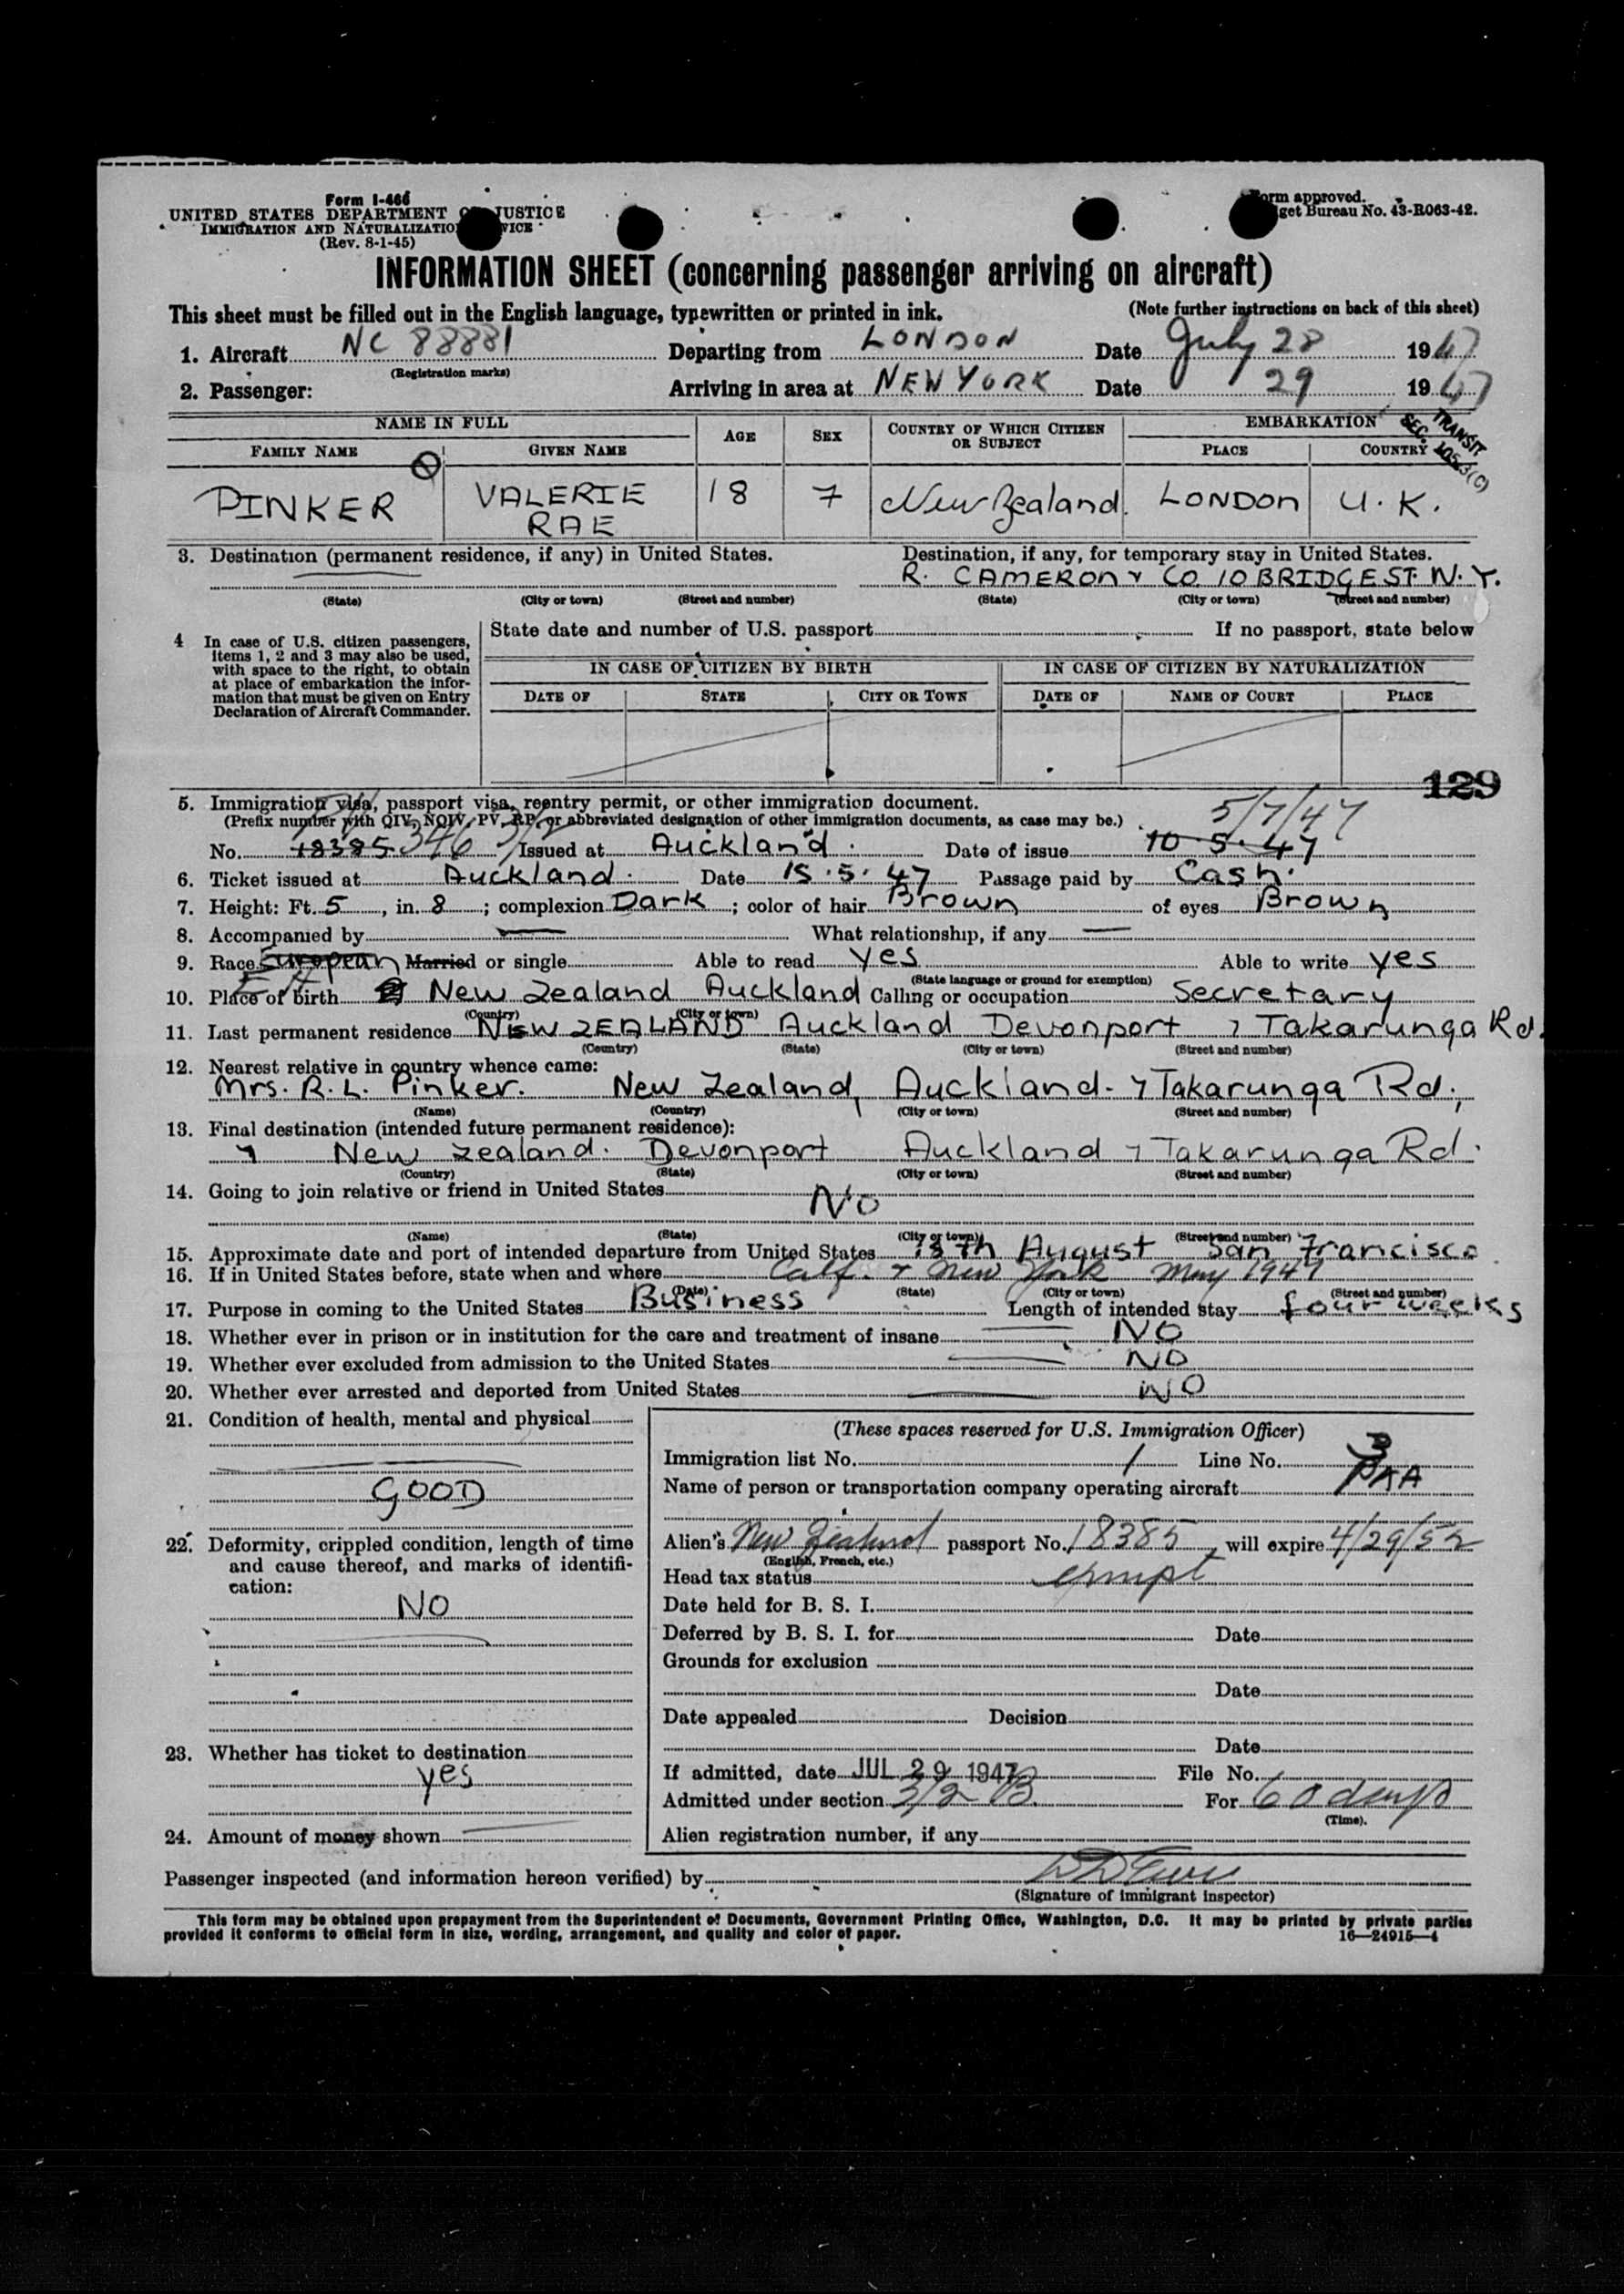 Form I-466
UNITED STATES DEPARTMENT OF JUSTICE
IMMIGRATION AND NATURALIZATION SERVICE
(Rev. 8-1-45)
Form approved.
Budget Bureau No. 43-R063-42.
INFORMATION SHEET (concerning passenger arriving on aircraft)
This sheet must be filled out in the English language, typewritten or printed in ink. (Note further instructions on back of this sheet)
1. Aircraft NC 88881 Departing from LONDON Date July 28 1947
(Registration marks)
2. Passenger: Arriving in area at NEW YORK Date 29 1947
TRANSIT
SEC. (C)
NAME IN FULL AGE SEX COUNTRY OF WHICH CITIZEN OR SUBJECT EMBARKATION
FAMILY NAME GIVEN NAME PLACE COUNTRY
PINKER VALERIE RAE 18 7 New Zealand. LONDON U.K.
3. Destination (permanent residence, if any) in United States. Destination, if any, for temporary stay in United States.
R. CAMERON & CO 10 BRIDGE ST. N.Y.
(State) (City or town) (Street and number) (State) (City or town) (Street and number)
4 In case of U.S. citizen passengers, items 1, 2 and 3 may also be used, with space to the right, to obtain at place of embarkation the information that must be given on Entry Declaration of Aircraft Commander.
State date and number of U.S. passport If no passport, state below
IN CASE OF CITIZEN BY BIRTH IN CASE OF CITIZEN BY NATURALIZATION
DATE OF STATE CITY OR TOWN DATE OF NAME OF COURT PLACE
129
5. Immigration visa, passport visa, reentry permit, or other immigration document.
(Prefix number with QIV, NQIV, PV, RP, or abbreviated designation of other immigration documents, as case may be.) 5/7/47
No. 18385 346 Issued at Auckland. Date of issue 10-5-47
6. Ticket issued at Auckland. Date 15.5.47 Passage paid by Cash.
7. Height: Ft. 5, in. 8; complexion Dark; color of hair Brown of eyes Brown
8. Accompanied by — What relationship, if any —
9. Race European Married or single Able to read Yes Able to write yes
(State language or ground for exemption)
10. Place of birth New Zealand Auckland Calling or occupation Secretary
(Country) (City or town)
11. Last permanent residence NEW ZEALAND Auckland Devonport 7 Takarunga Rd.
(Country) (State) (City or town) (Street and number)
12. Nearest relative in country whence came:
Mrs. R. L. Pinker. New Zealand, Auckland. 7 Takarunga Rd.,
(Name) (Country) (City or town) (Street and number)
13. Final destination (intended future permanent residence):
7 New Zealand. Devonport Auckland 7 Takarunga Rd.
(Country) (State) (City or town) (Street and number)
14. Going to join relative or friend in United States
NO
(Name) (State) (City or town) (Street and number)
15. Approximate date and port of intended departure from United States 18th August San Francisco
16. If in United States before, state when and where Calf. & New York May 1947
(Date) (State) (City or town) (Street and number)
17. Purpose in coming to the United States Business Length of intended stay four weeks
18. Whether ever in prison or in institution for the care and treatment of insane NO
19. Whether ever excluded from admission to the United States NO
20. Whether ever arrested and deported from United States NO
21. Condition of health, mental and physical
GOOD
22. Deformity, crippled condition, length of time and cause thereof, and marks of identification:
NO
23. Whether has ticket to destination
yes
24. Amount of money shown
(These spaces reserved for U.S. Immigration Officer)
Immigration list No. 1 Line No. 3
Name of person or transportation company operating aircraft PAA
Alien's New Zealand passport No. 18385, will expire 4/29/52
(English, French, etc.)
Head tax status exmpt
Date held for B. S. I.
Deferred by B. S. I. for Date
Grounds for exclusion
Date
Date appealed Decision
Date
If admitted, date JUL 29 1947 File No.
Admitted under section 3/2 B. For 60 days
(Time).
Alien registration number, if any
Passenger inspected (and information hereon verified) by
(Signature of immigrant inspector)
This form may be obtained upon prepayment from the Superintendent of Documents, Government Printing Office, Washington, D.C. It may be printed by private parties
provided it conforms to official form in size, wording, arrangement, and quality and color of paper. 16—24915-4